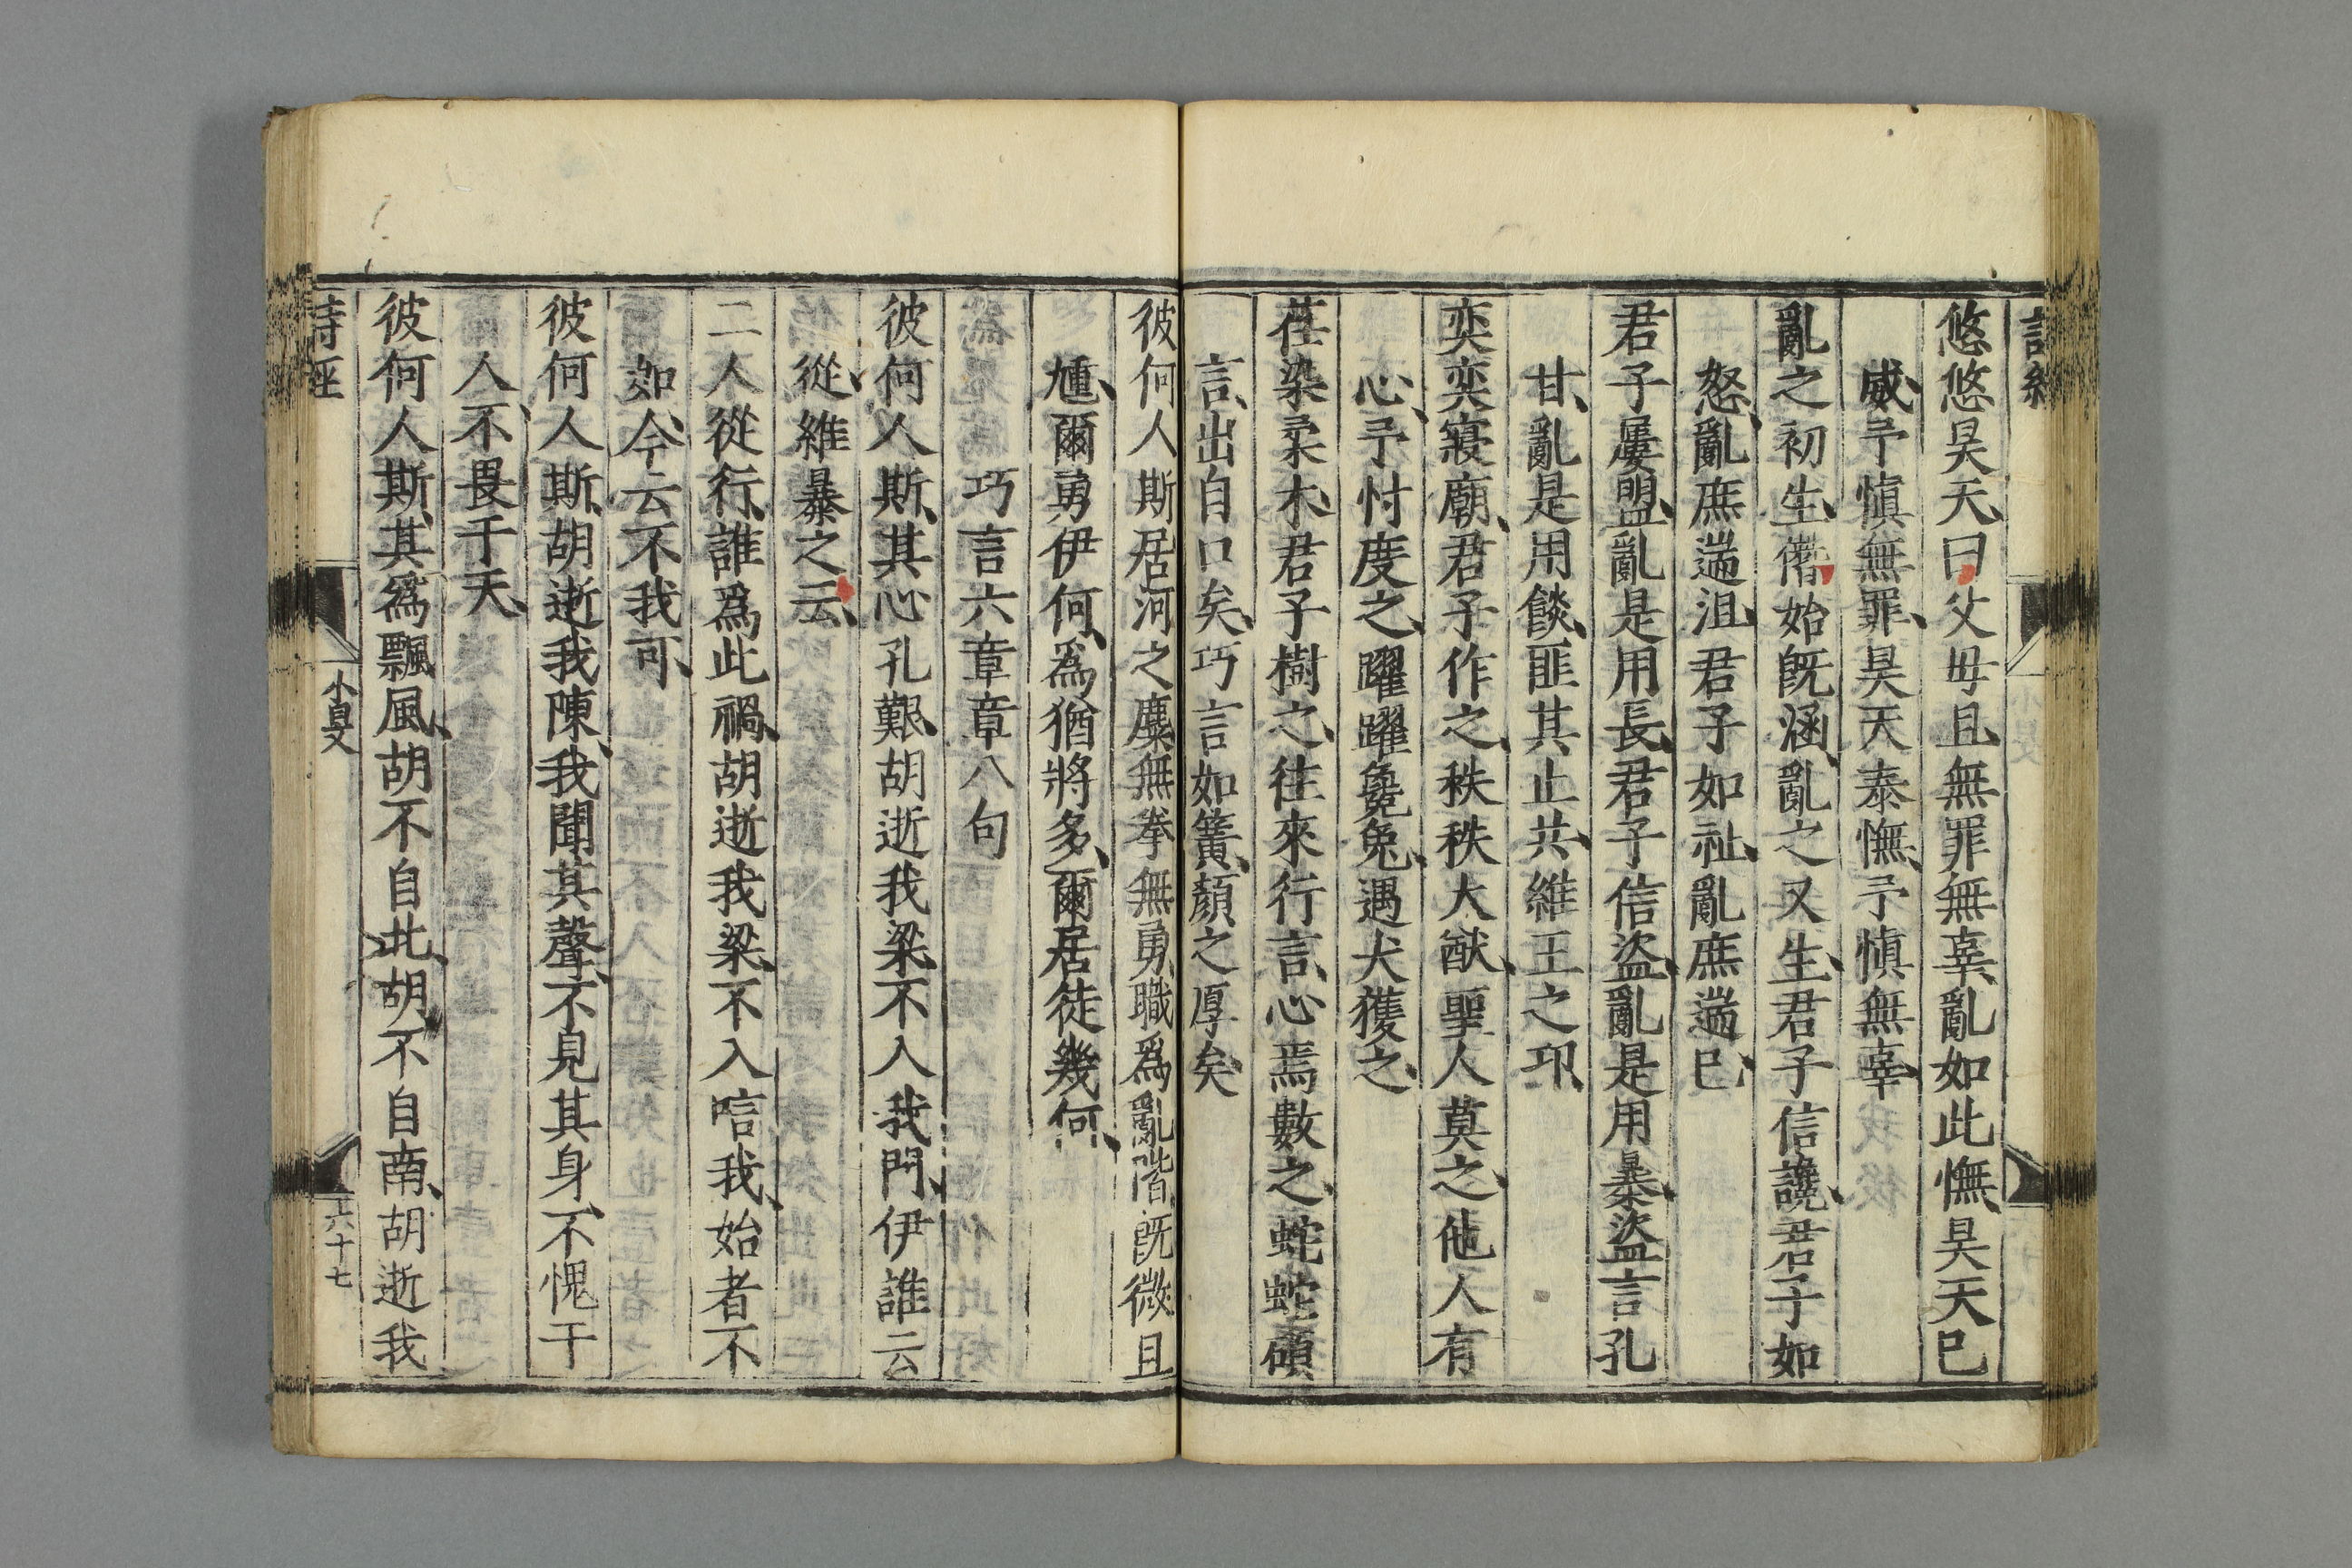 悠悠昊天曰父母且無罪無辜亂如此憮昊天已
威予慎無罪昊天泰憮予慎無辜
亂之初生僭始旣涵亂之又生君子信讒君子如
怒亂庶遄沮君子如祉亂庶遄已
君子屢盟亂是用長君子信盜亂是用暴盜言孔
甘亂是用餤匪其止共維王之邛
奕奕寢廟君子作之秩秩大猷聖人莫之他人有
心予忖度之躍躍毚兔遇犬獲之
荏染柔木君子樹之往來行言心焉數之蛇蛇碩
言出自口矣巧言如簧顏之厚矣
彼何人斯居河之麋無拳無勇職爲亂階旣微且
尰爾勇伊何爲猶將多爾居徒幾何
巧言六章章八句
彼何人斯其心孔艱胡逝我梁不入我門伊誰云
從維暴之云
二人從行誰爲此禍胡逝我梁不入唁我始者不
如今云不我可
彼何人斯胡逝我陳我聞其聲不見其身不愧于
人不畏于天
彼何人斯其爲飄風胡不自北胡不自南胡逝我
詩經
小旻
六十七